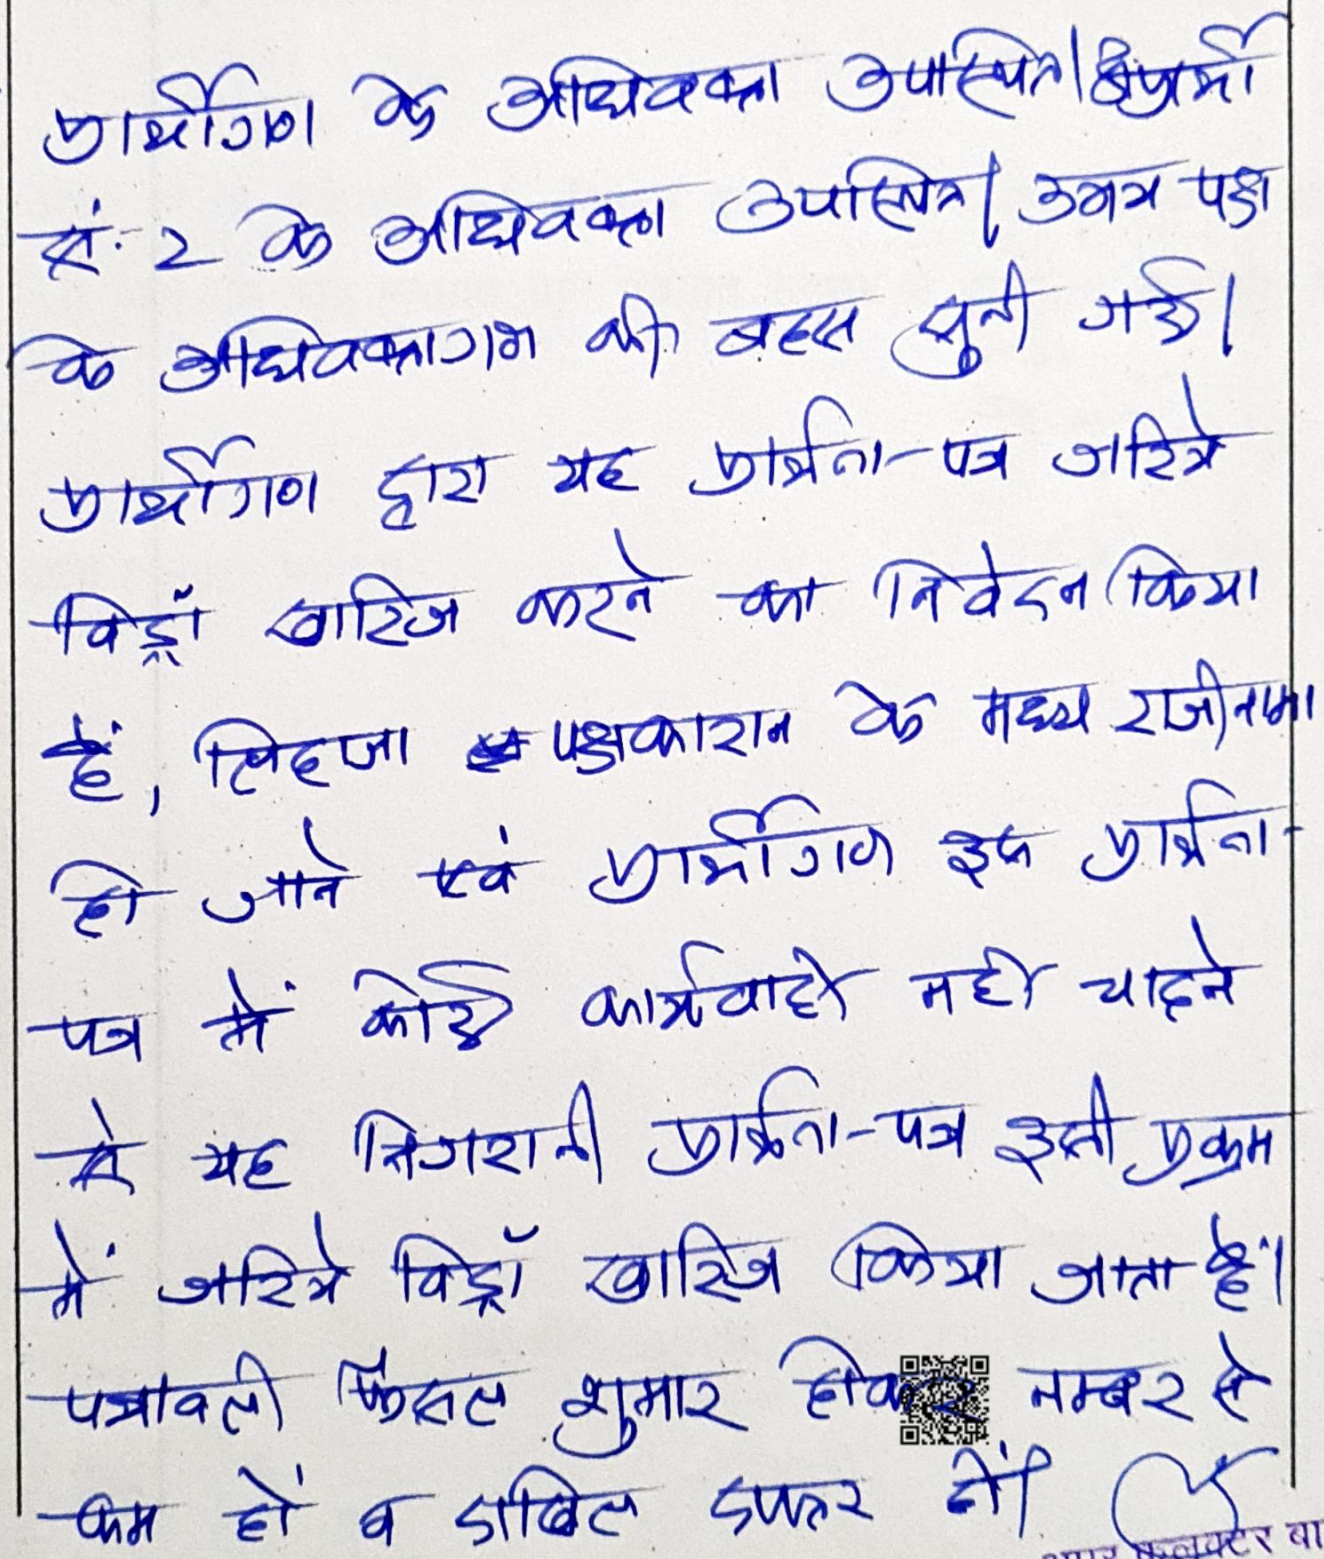 प्रार्थीगण के अधिवक्ता उपस्थित। अप्रार्थी
सं. 2 के अधिवक्ता उपस्थित। उभय पक्ष
के अधिवक्तागण की बहस सुनी गई।
प्रार्थीगण द्वारा यह प्रार्थना-पत्र जरिये
विड्रॉ खारिज करने का निवेदन किया
है, लिहाजा पक्षकारान के मध्य राजीनामा
हो जाने एवं प्रार्थीगण इस प्रार्थना-
पत्र में कोई कार्यवाही नहीं चाहने
से यह निगरानी प्रार्थना-पत्र इसी प्रक्रम
में जरिये विड्रॉ खारिज किया जाता है।
पत्रावली फैसल शुमार होकर नम्बर से
कम हो व दाखिल दफ्तर हो।
कलक्टर